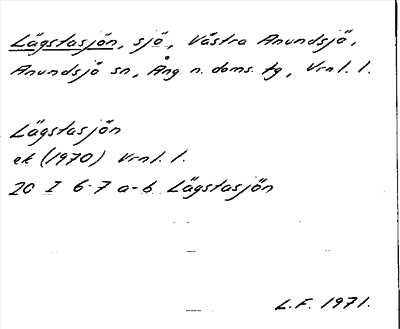 Lägstasjön, sjö, Västra Anundsjö,
Anundsjö sn, Ång n. doms. tg, Vrnl. l.
Lägstasjön
ek (1970) Vrnl. l.
20 I 6-7 a-b Lägstasjön
L.F. 1971.